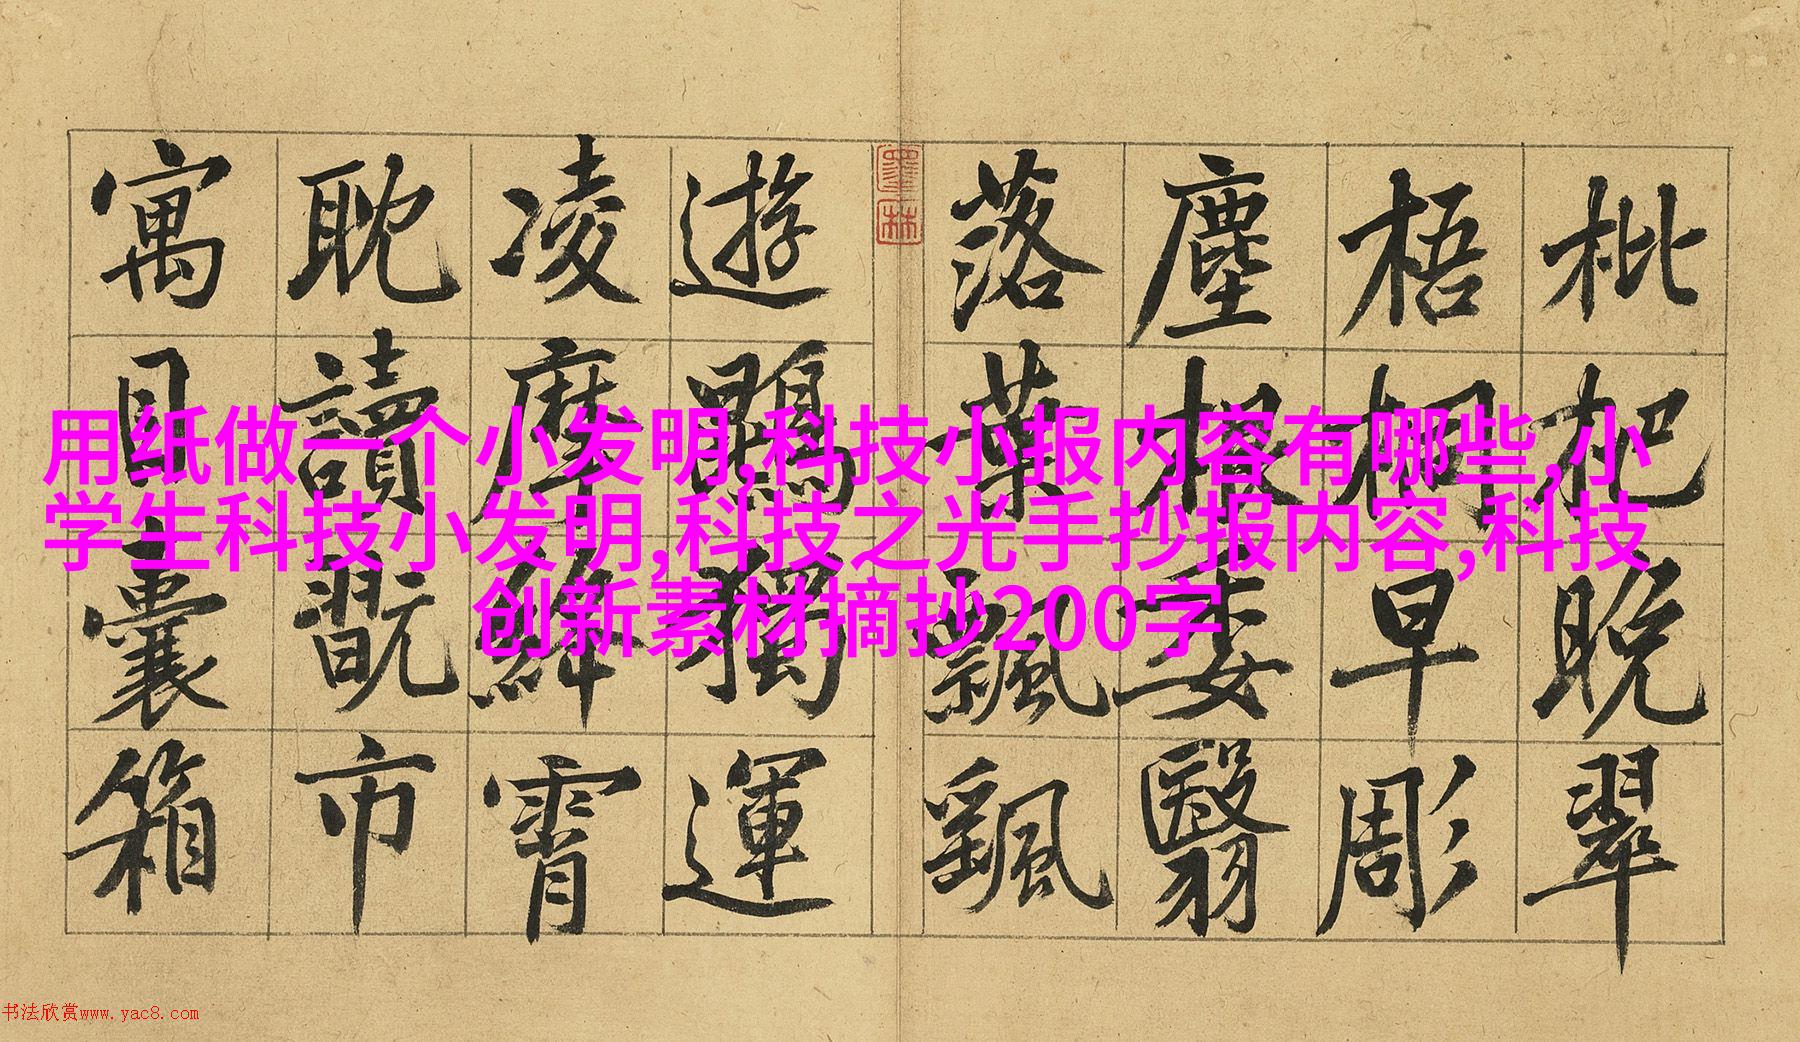 枇杷晚翠
梧桐早彫
塵根委翳
落葉飄颻
遊鵾獨運
凌摩絳霄
耽讀翫市
寓目囊箱
墨林
用纸做一个小发明,科技小报内容有哪些,小
学生科技小发明,科技之光手抄报内容,科技
创新素材摘抄200字
书法欣赏www.yac8.com